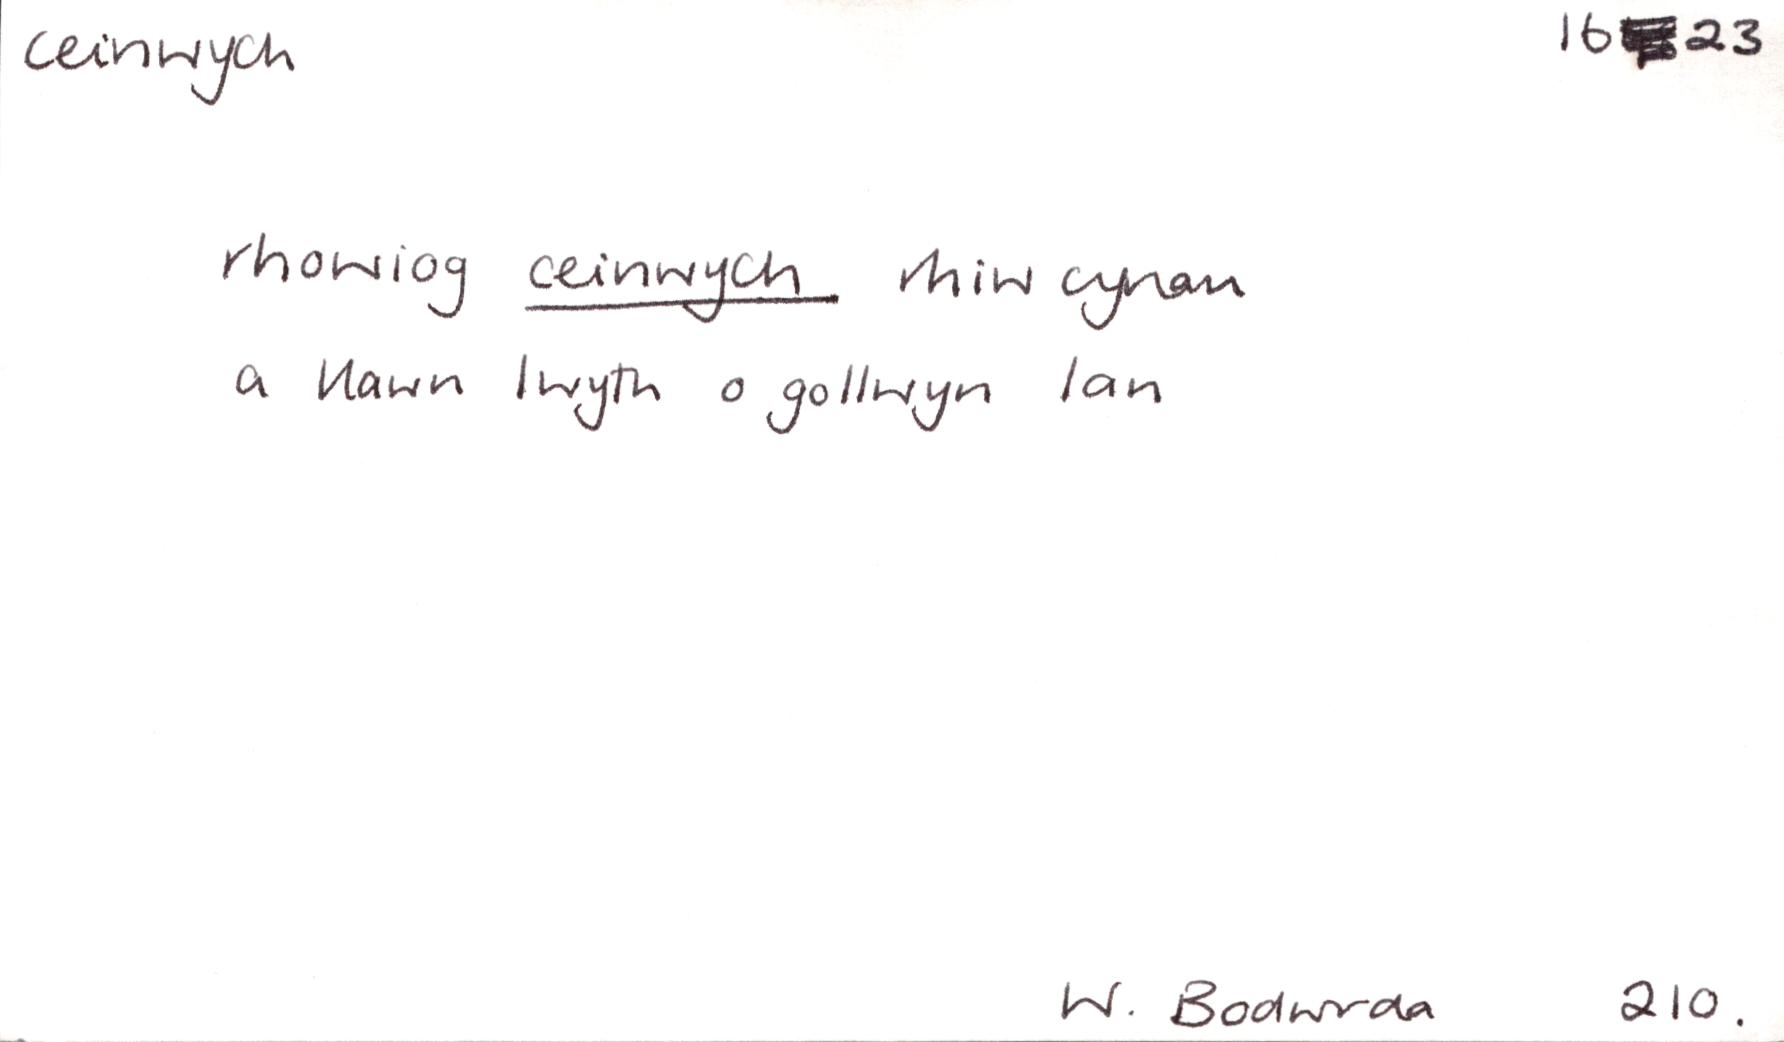 ceinwych 1623
rhowiog ceinwych rhiw cynan
a llawn lwyth o gollwyn lan
W. Bodwrda 210.